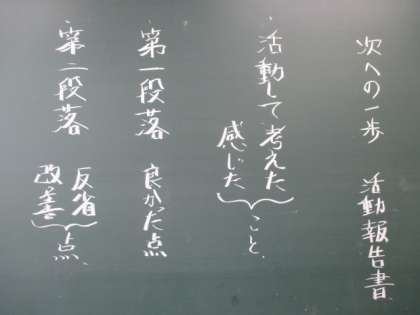 次への一歩 活動報告書
・活動して考えた
感じた}こと、
・第一段落 良かった点
・第二段落 反省
改善}点、